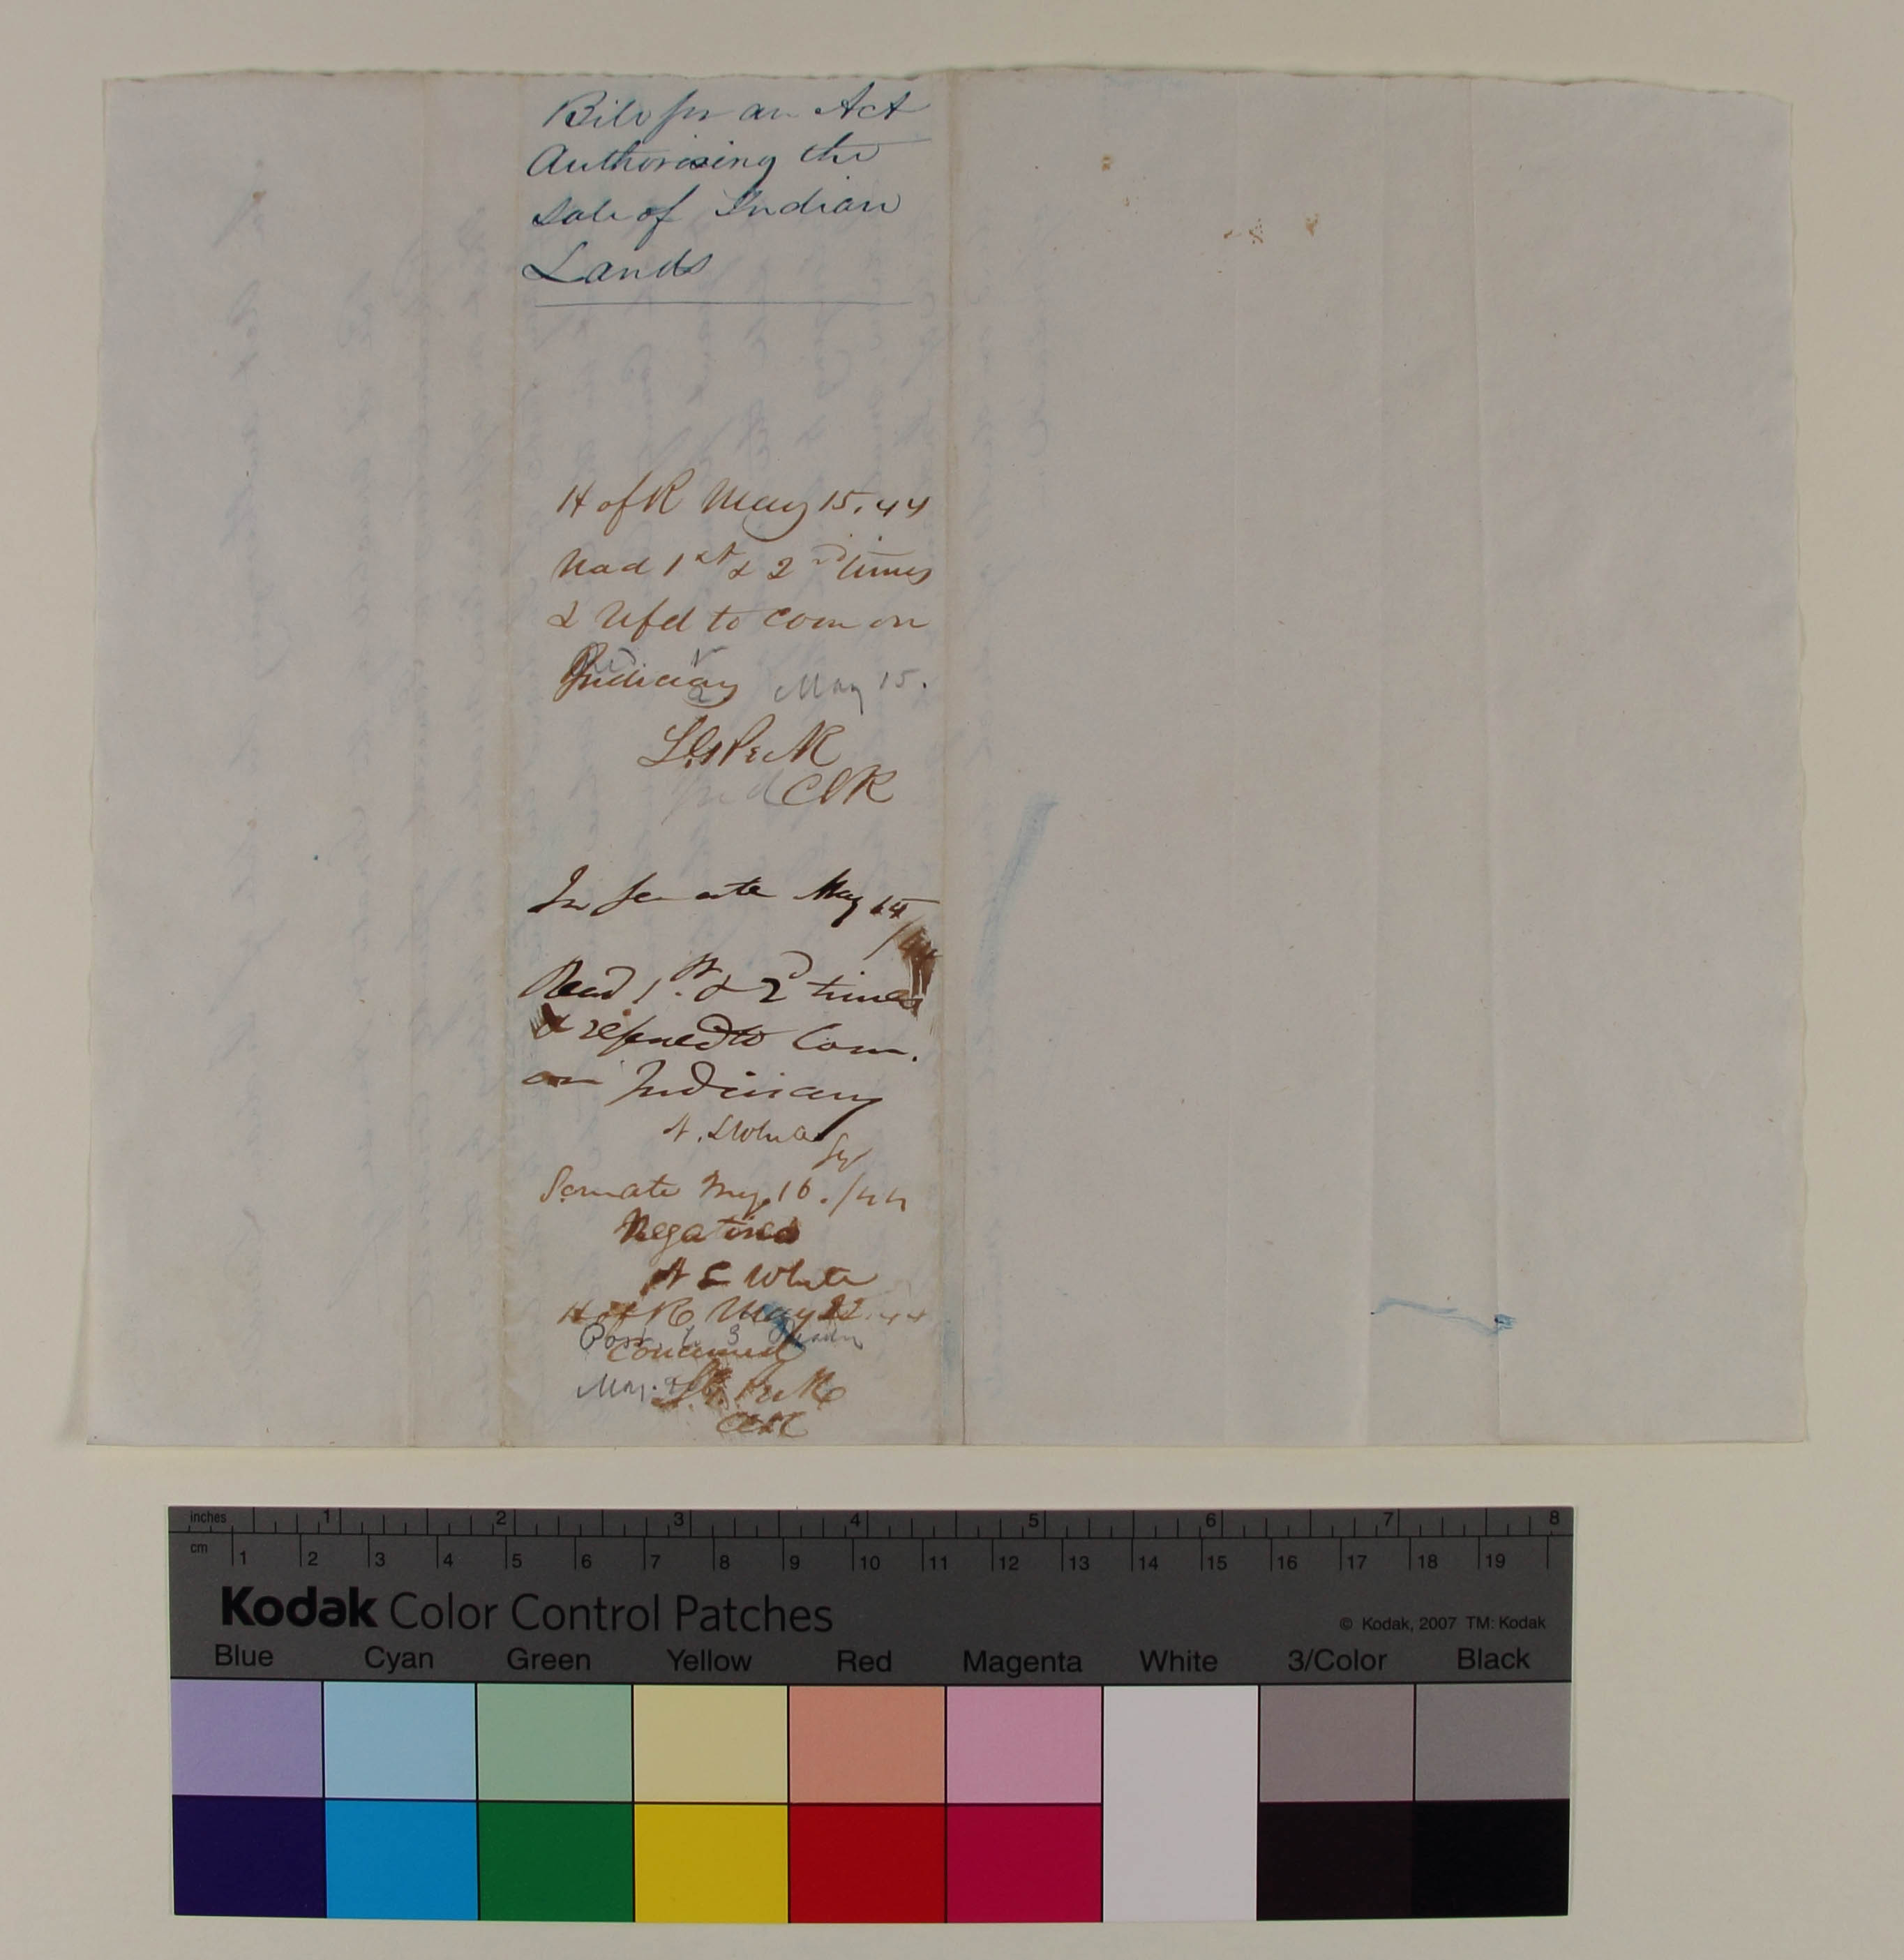 Bill for an Act
Authorising the
Sale of Indian
Lands
H of R May 15, 44
Read 1st & 2nd times
& Refd to Com on
Judiciary May 15.
ClK
In Senate May 15
Read 1st & 2d times
& referred to Com.
on Judiciary
A. S White Sy
Senate May. 16. /44
Negatived
A S White
H of R May 22. 44
Concurred
May.
inches 1 2 3 4 5 6 7 8
cm 1 2 3 4 5 6 7 8 9 10 11 12 13 14 15 16 17 18 19
Kodak Color Control Patches
© Kodak, 2007 TM: Kodak
Blue Cyan Green Yellow Red Magenta White 3/Color Black